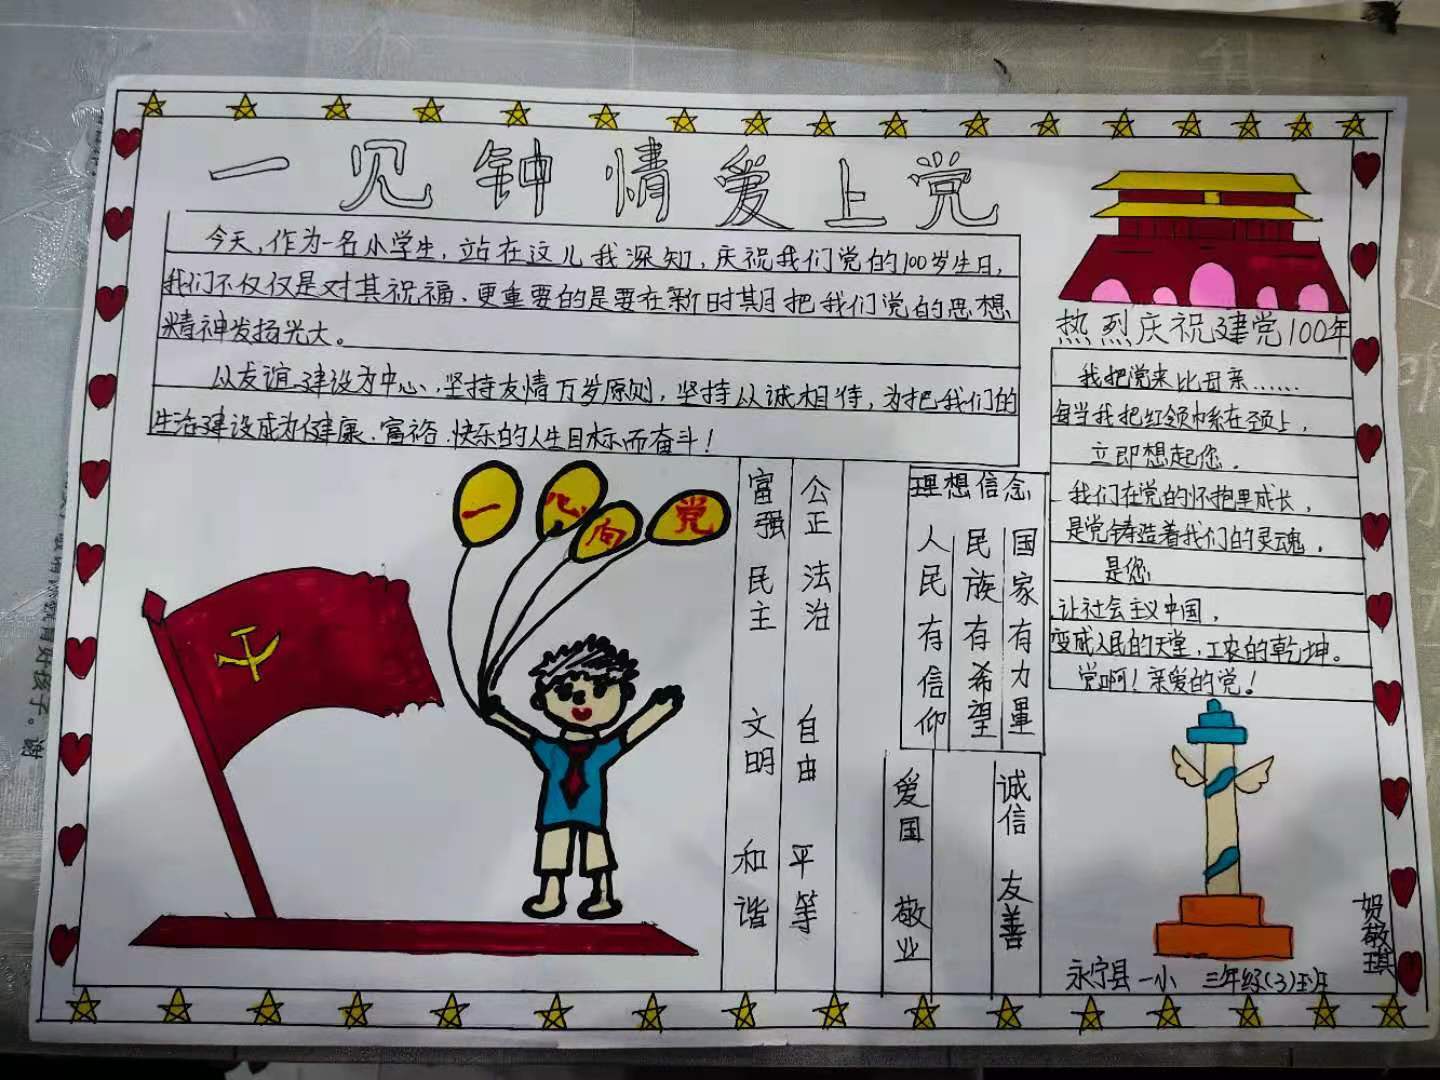 一见钟情爱上党
今天,作为一名小学生,站在这儿我深知,庆祝我们党的100岁生日,
我们不仅仅是对其祝福、更重要的是要在新时期把我们党的思想
精神发扬光大。
以友谊建设为中心、坚持友情万岁原则,坚持以诚相待,为把我们的
生活建设成为健康、富裕、快乐的人生目标而奋斗!
热烈庆祝建党100年
我把党来比母亲……
每当我把红领巾系在颈上,
立即想起您.
我们在党的怀抱里成长,
是党铸造着我们的灵魂.
是您
让社会主义中国,
变成人民的天堂,工农的乾坤。
党啊!亲爱的党!
一心向党
富强 民主 文明 和谐
公正 法治 自由 平等
理想信念
人民有信仰
民族有希望
国家有力量
爱国 敬业
诚信 友善
永宁县一小 三年级(3)班
贺敬琪